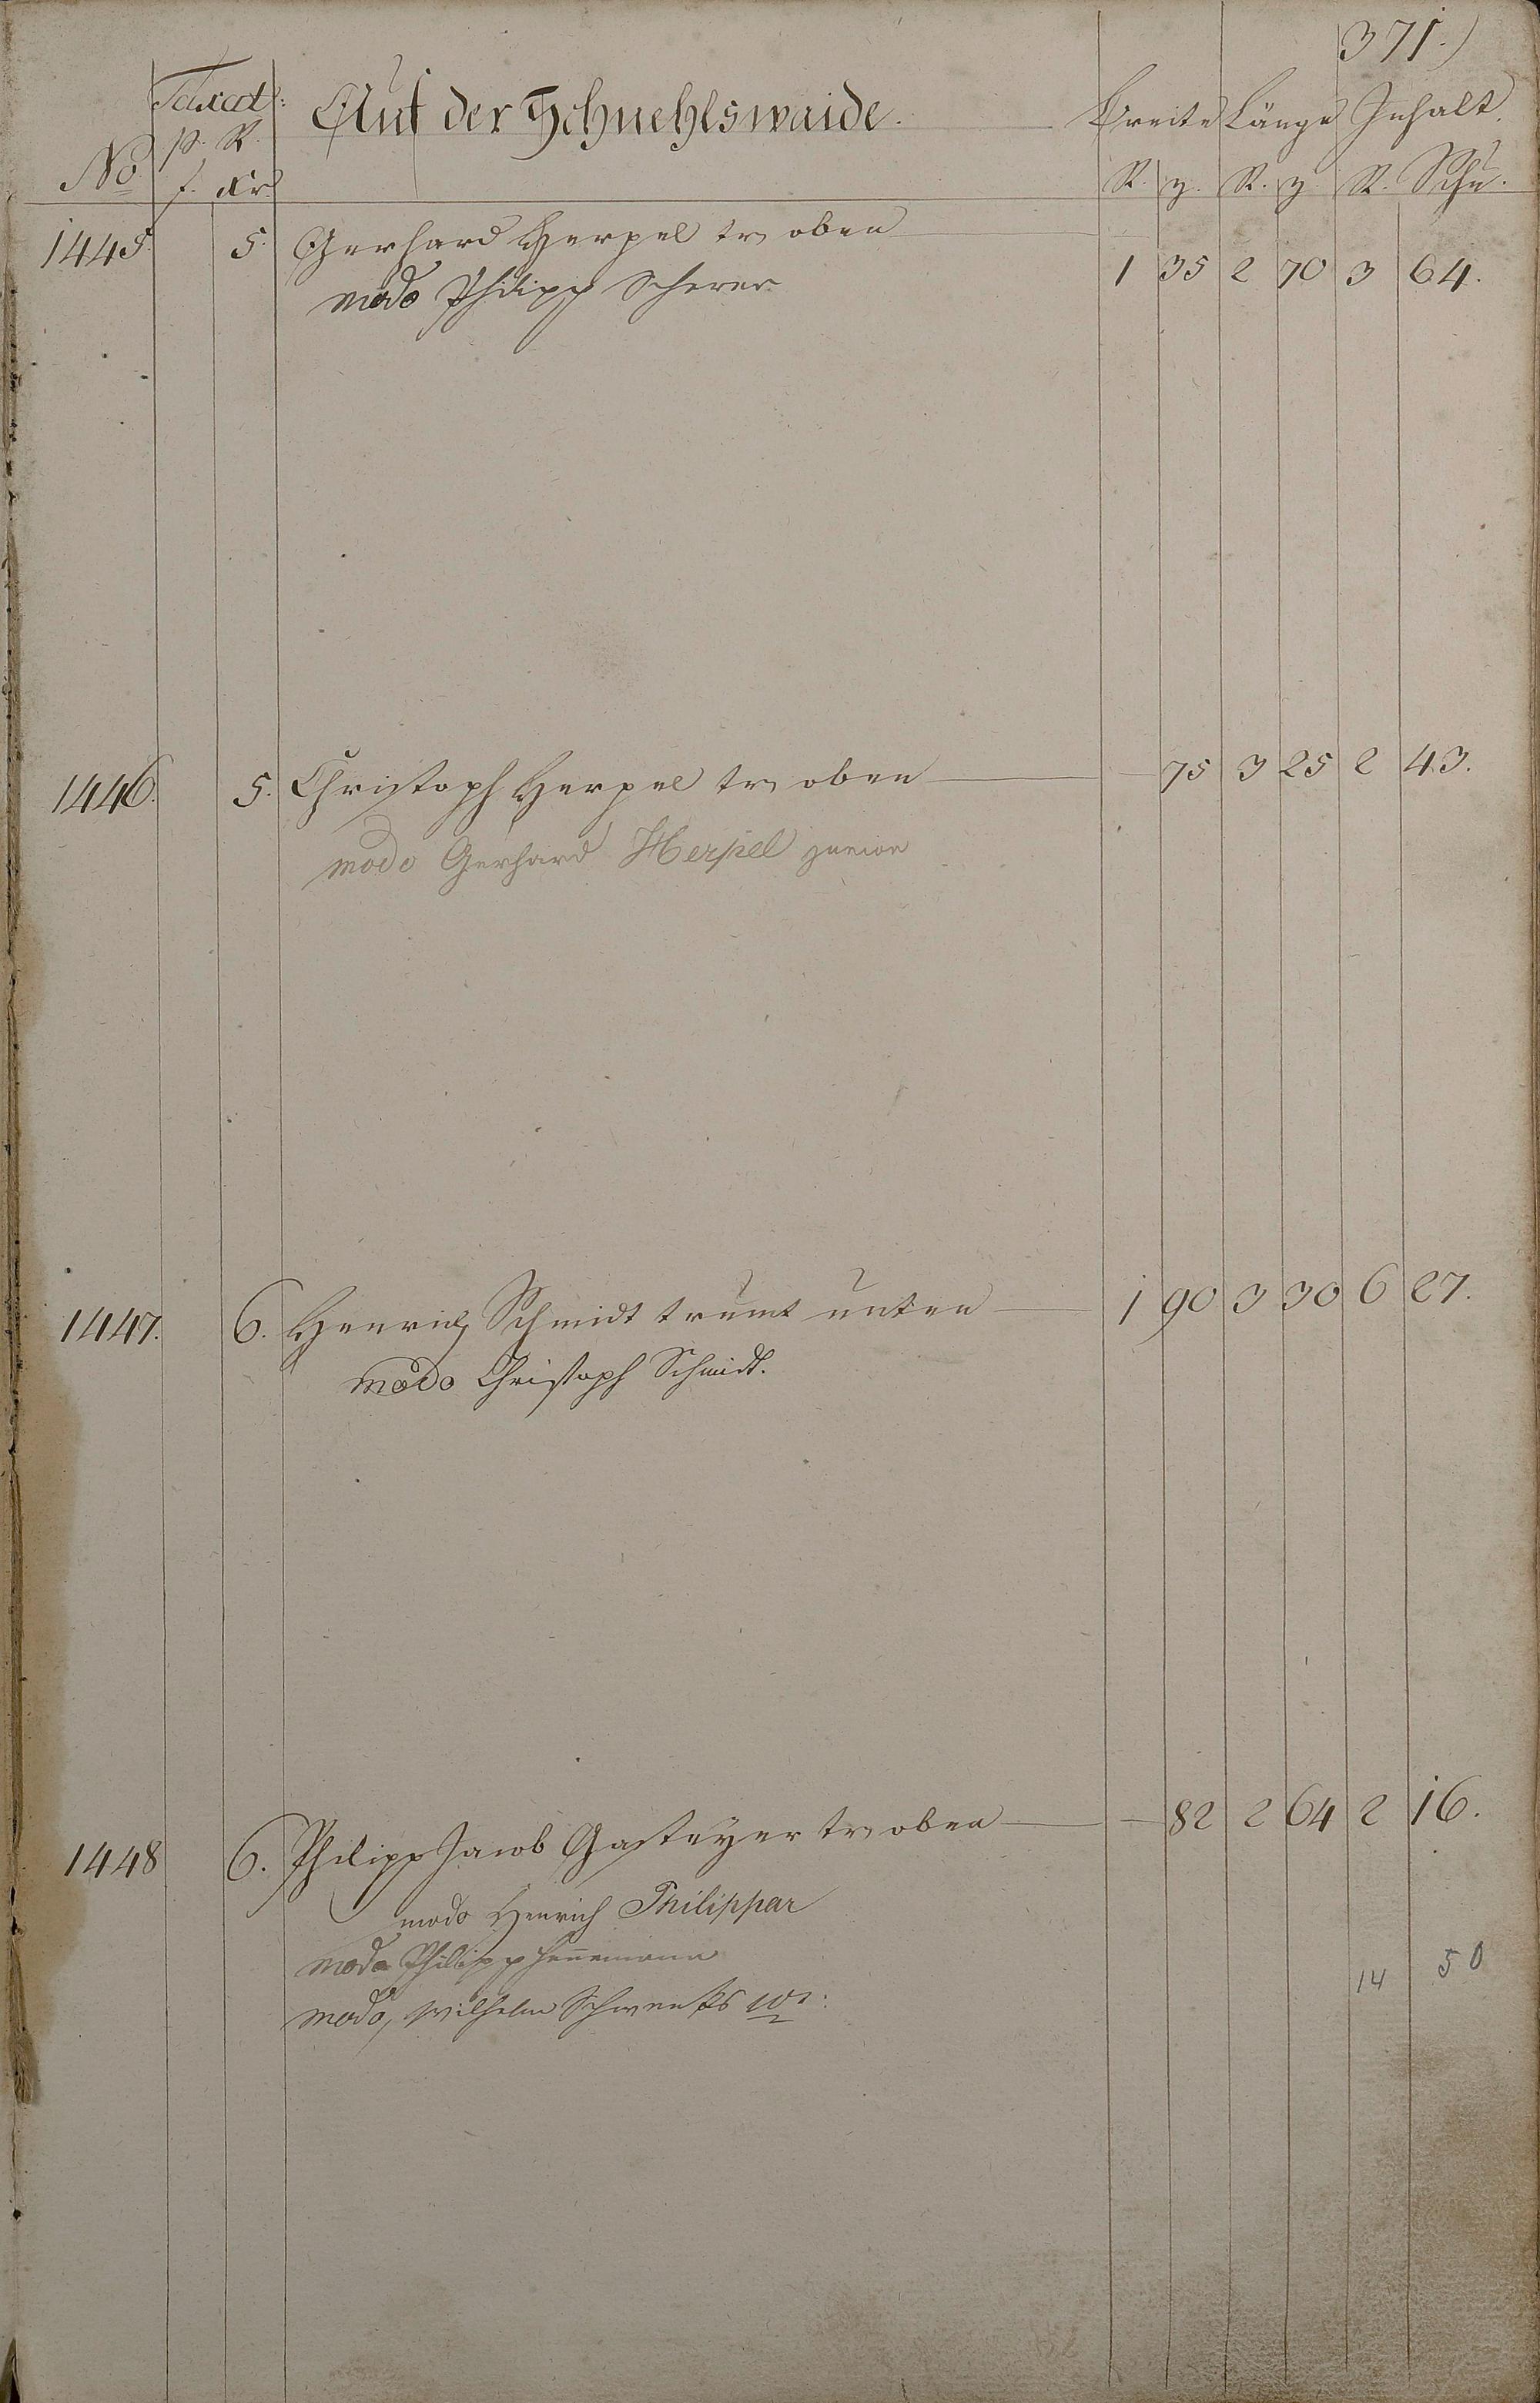 371.)
Taxat: Auf der Schuehlswaide. Breite Länge Inhalt.
No p. R. f. Xr. R. z. R. z. R. Schu.
1445. 5. Gerhard Herpel tr. oben 1 35 2 70 3 64.
modo Philipp Scherer
1446. 5. Christoph Herpel tr. oben — 75 3 25 2 43.
modo Gerhard Herpel junior
1447. 6. Henrich Schmidt trumt unten 1 90 3 30 6 27.
modo Christoph Schmidt.
1448 6. Philipp Jacob Gasteyer tr. oben — 82 2 64 2 16.
modo Henrich Philippar
modo Philipp Hennemann
14 50
modo, Wilhelm Schwenks